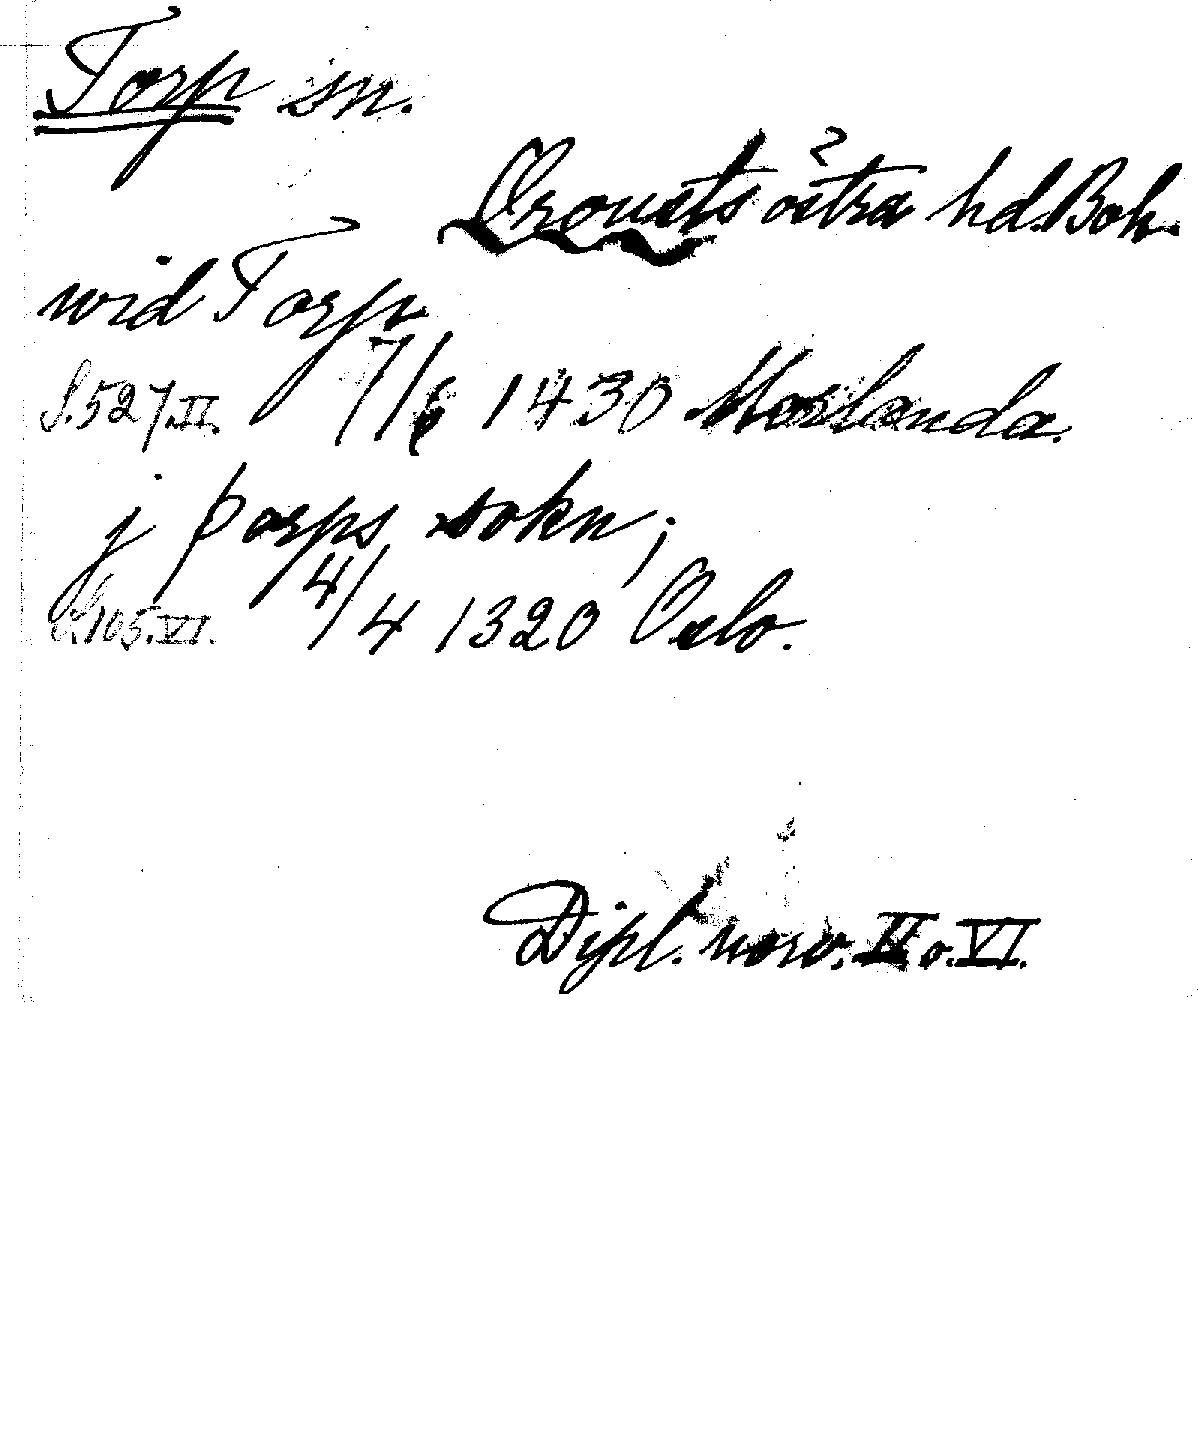 Torp sn.
Orousts östra hd. Boh.
wid Torp
S. 527. II. 7/6 1430 Morlanda.
j þorps sokn;
S. 105. VI. 4/4 1320 Oslo.
Dipl. norv. II o. VI.